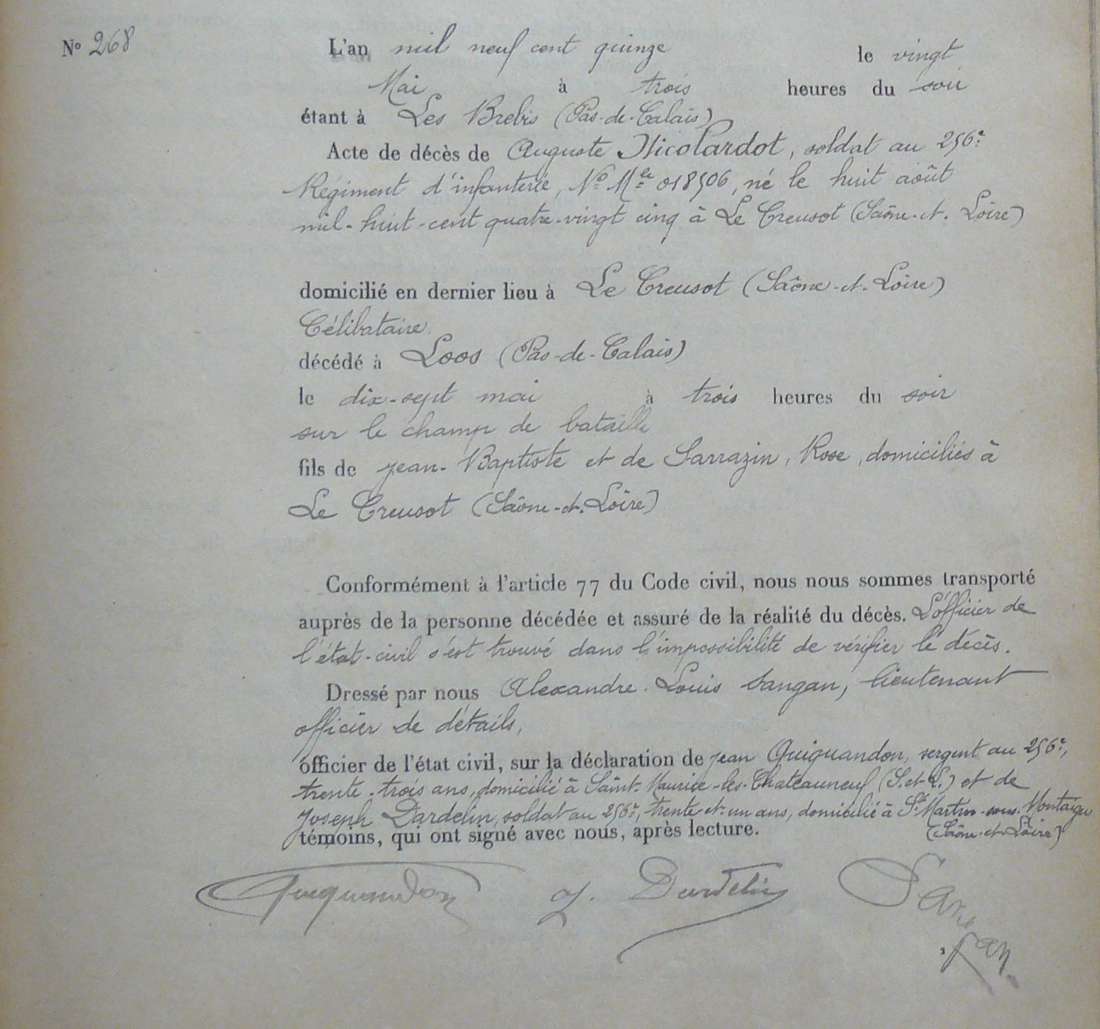 N° 268
L'an mil neuf cent quinze le vingt
Mai à trois heures du soir
étant à Les Brebis (Pas-de-Calais)
Acte de décès de Auguste Nicolardot, soldat au 256e
Régiment d'infanterie, N° Mle 018506, né le huit août
mil-huit-cent quatre-vingt cinq à Le Creusot (Saône-et-Loire)
domicilié en dernier lieu à Le Creusot (Saône-et-Loire)
Célibataire
décédé à Loos (Pas-de-Calais)
le dix-sept mai à trois heures du soir
sur le champ de bataille
fils de Jean-Baptiste et de Sarrazin, Rose, domiciliés à
Le Creusot (Saône-et-Loire)
Conformément à l'article 77 du Code civil, nous nous sommes transporté
auprès de la personne décédée et assuré de la réalité du décès. L'officier de
l'état-civil s'est trouvé dans l'impossibilité de vérifier le décès.
Dressé par nous Alexandre Louis Sangan, lieutenant
officier de détails,
officier de l'état civil, sur la déclaration de Jean Quiquandon, sergent au 256e,
trente-trois ans, domicilié à Saint-Maurice-les-Chateauneuf (S.et.L.) et de
Joseph Dardelin, soldat au 256e, trente-et-un ans, domicilié à St Martin-sous-Montaigu
(Saône-et-Loire)
témoins, qui ont signé avec nous, après lecture.
Quiquandon J. Dardelin Sangan